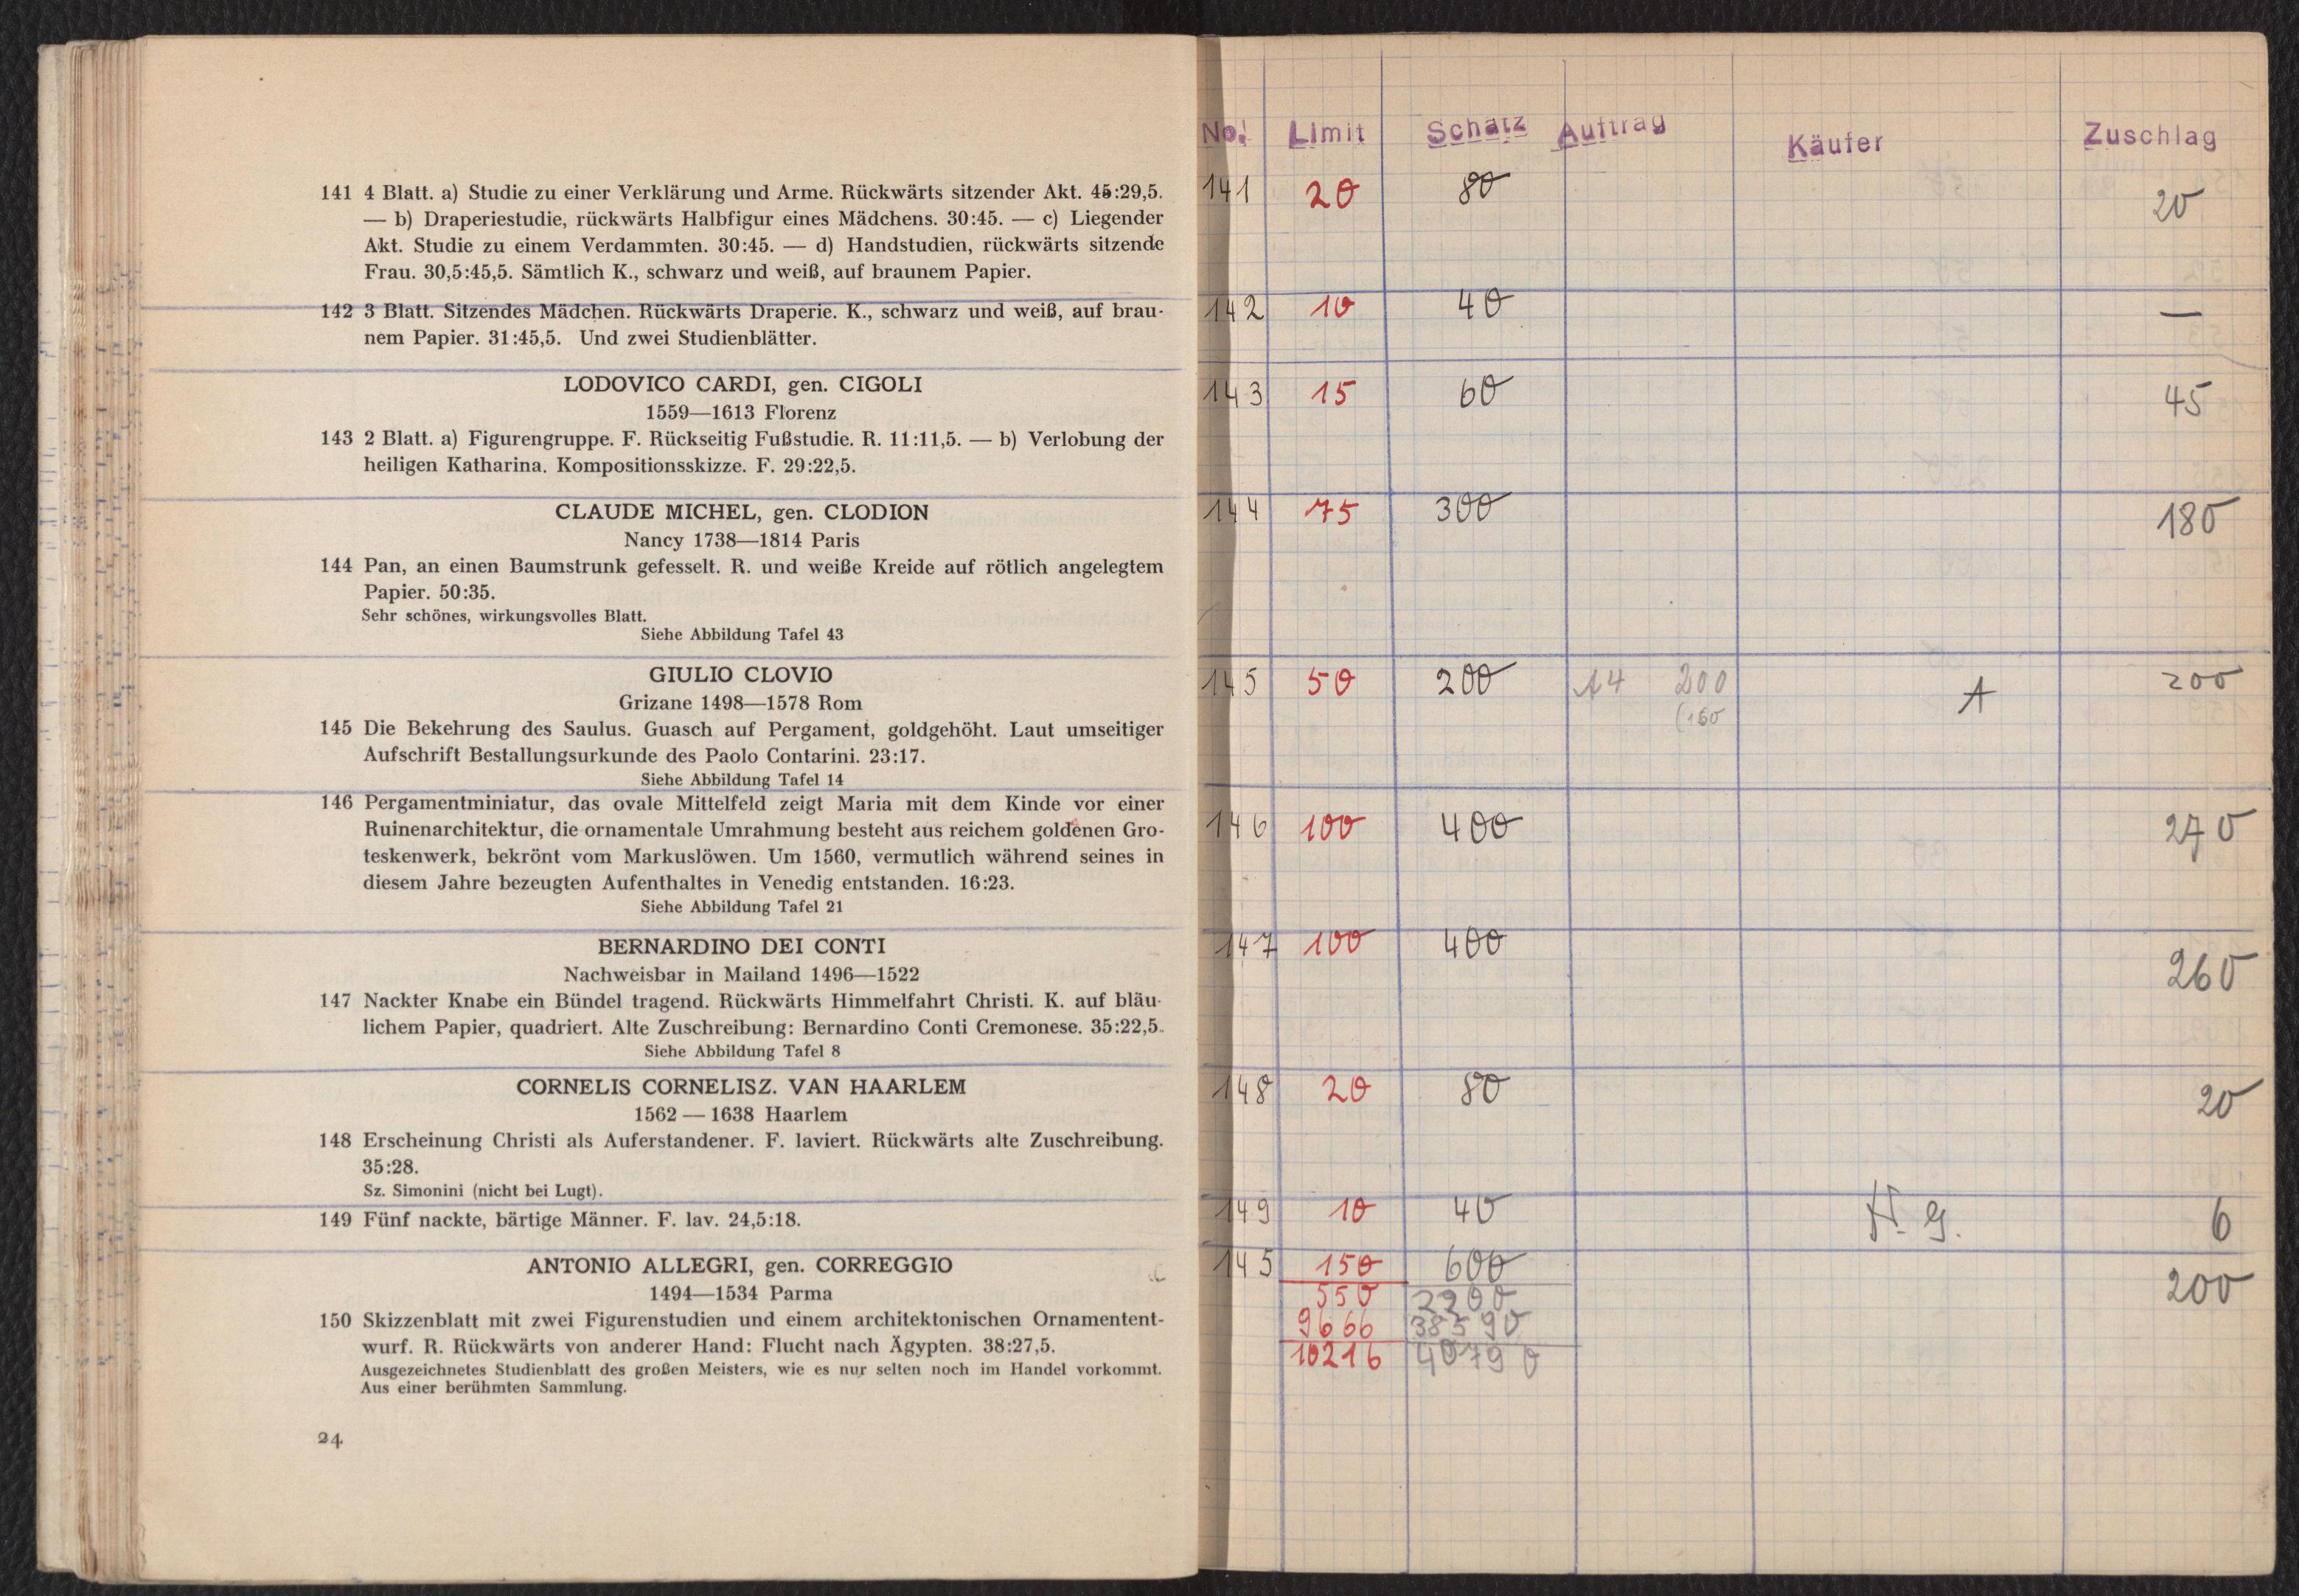 141 4 Blatt. a) Studie zu einer Verklärung und Arme. Rückwärts sitzender Akt. 45:29,5.
— b) Draperiestudie, rückwärts Halbfigur eines Mädchens. 30:45. — c) Liegender
Akt. Studie zu einem Verdammten. 30:45. — d) Handstudien, rückwärts sitzende
Frau. 30,5:45,5. Sämtlich K., schwarz und weiß, auf braunem Papier.
142 3 Blatt. Sitzendes Mädchen. Rückwärts Draperie. K., schwarz und weiß, auf brau-
nem Papier. 31:45,5. Und zwei Studienblätter.
LODOVICO CARDI, gen. CIGOLI
1559—1613 Florenz
143 2 Blatt. a) Figurengruppe. F. Rückseitig Fußstudie. R. 11:11,5. — b) Verlobung der
heiligen Katharina. Kompositionsskizze. F. 29:22,5.
CLAUDE MICHEL, gen. CLODION
Nancy 1738—1814 Paris
144 Pan, an einen Baumstrunk gefesselt. R. und weiße Kreide auf rötlich angelegtem
Papier. 50:35.
Sehr schönes, wirkungsvolles Blatt.
Siehe Abbildung Tafel 43
GIULIO CLOVIO
Grizane 1498—1578 Rom
145 Die Bekehrung des Saulus. Guasch auf Pergament, goldgehöht. Laut umseitiger
Aufschrift Bestallungsurkunde des Paolo Contarini. 23:17.
Siehe Abbildung Tafel 14
146 Pergamentminiatur, das ovale Mittelfeld zeigt Maria mit dem Kinde vor einer
Ruinenarchitektur, die ornamentale Umrahmung besteht aus reichem goldenen Gro-
teskenwerk, bekrönt vom Markuslöwen. Um 1560, vermutlich während seines in
diesem Jahre bezeugten Aufenthaltes in Venedig entstanden. 16:23.
Siehe Abbildung Tafel 21
BERNARDINO DEI CONTI
Nachweisbar in Mailand 1496—1522
147 Nackter Knabe ein Bündel tragend. Rückwärts Himmelfahrt Christi. K. auf bläu-
lichem Papier, quadriert. Alte Zuschreibung: Bernardino Conti Cremonese. 35:22,5.
Siehe Abbildung Tafel 8
CORNELIS CORNELISZ. VAN HAARLEM
1562 — 1638 Haarlem
148 Erscheinung Christi als Auferstandener. F. laviert. Rückwärts alte Zuschreibung.
35:28.
Sz. Simonini (nicht bei Lugt).
149 Fünf nackte, bärtige Männer. F. lav. 24,5:18.
ANTONIO ALLEGRI, gen. CORREGGIO
1494—1534 Parma
150 Skizzenblatt mit zwei Figurenstudien und einem architektonischen Ornamentent-
wurf. R. Rückwärts von anderer Hand: Flucht nach Ägypten. 38:27,5.
Ausgezeichnetes Studienblatt des großen Meisters, wie es nur selten noch im Handel vorkommt.
Aus einer berühmten Sammlung.
24
No. Limit Schätz Auftrag Käufer Zuschlag
141 20 80 20
142 10 40 —
143 15 60 45
144 75 300 180
145 50 200 14 200 A 200
(150
146 100 400 270
147 100 400 260
148 20 80 20
149 10 40 H. G. 6
145 150 600 200
550 2200
9666 38590
10216 40790